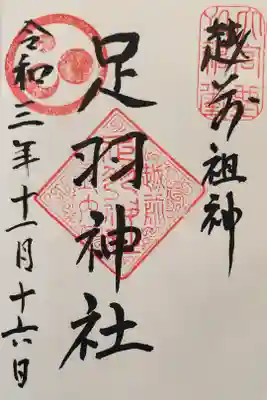 越前祖神
足羽神社
令和二年十一月十六日